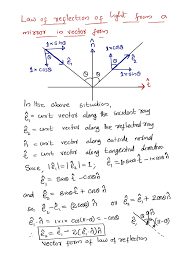 Law of reflection of light from a
mirror in vector form
1×sinθ
1×cosθ
n̂
ê₁
θ θ
ê₂
1×cosθ
1×sinθ
t̂
In the above situation,
ê₁ = unit vector along the incident ray
ê₂ = unit vector along the reflected ray
n̂ = unit vector along outside normal
t̂ = unit vector along tangential direction
Since, |ê₁| = |ê₂| = 1,
ê₁ = sinθ t̂ - cosθ n̂
and ê₂ = sinθ t̂ + cosθ n̂
So ê₂ - ê₁ = (2cosθ) n̂
ê₁·n̂ = 1×1×cos(π-θ) = -cosθ
∴ ê₂ = ê₁ - 2(ê₁·n̂) n̂
Vector form of law of reflection